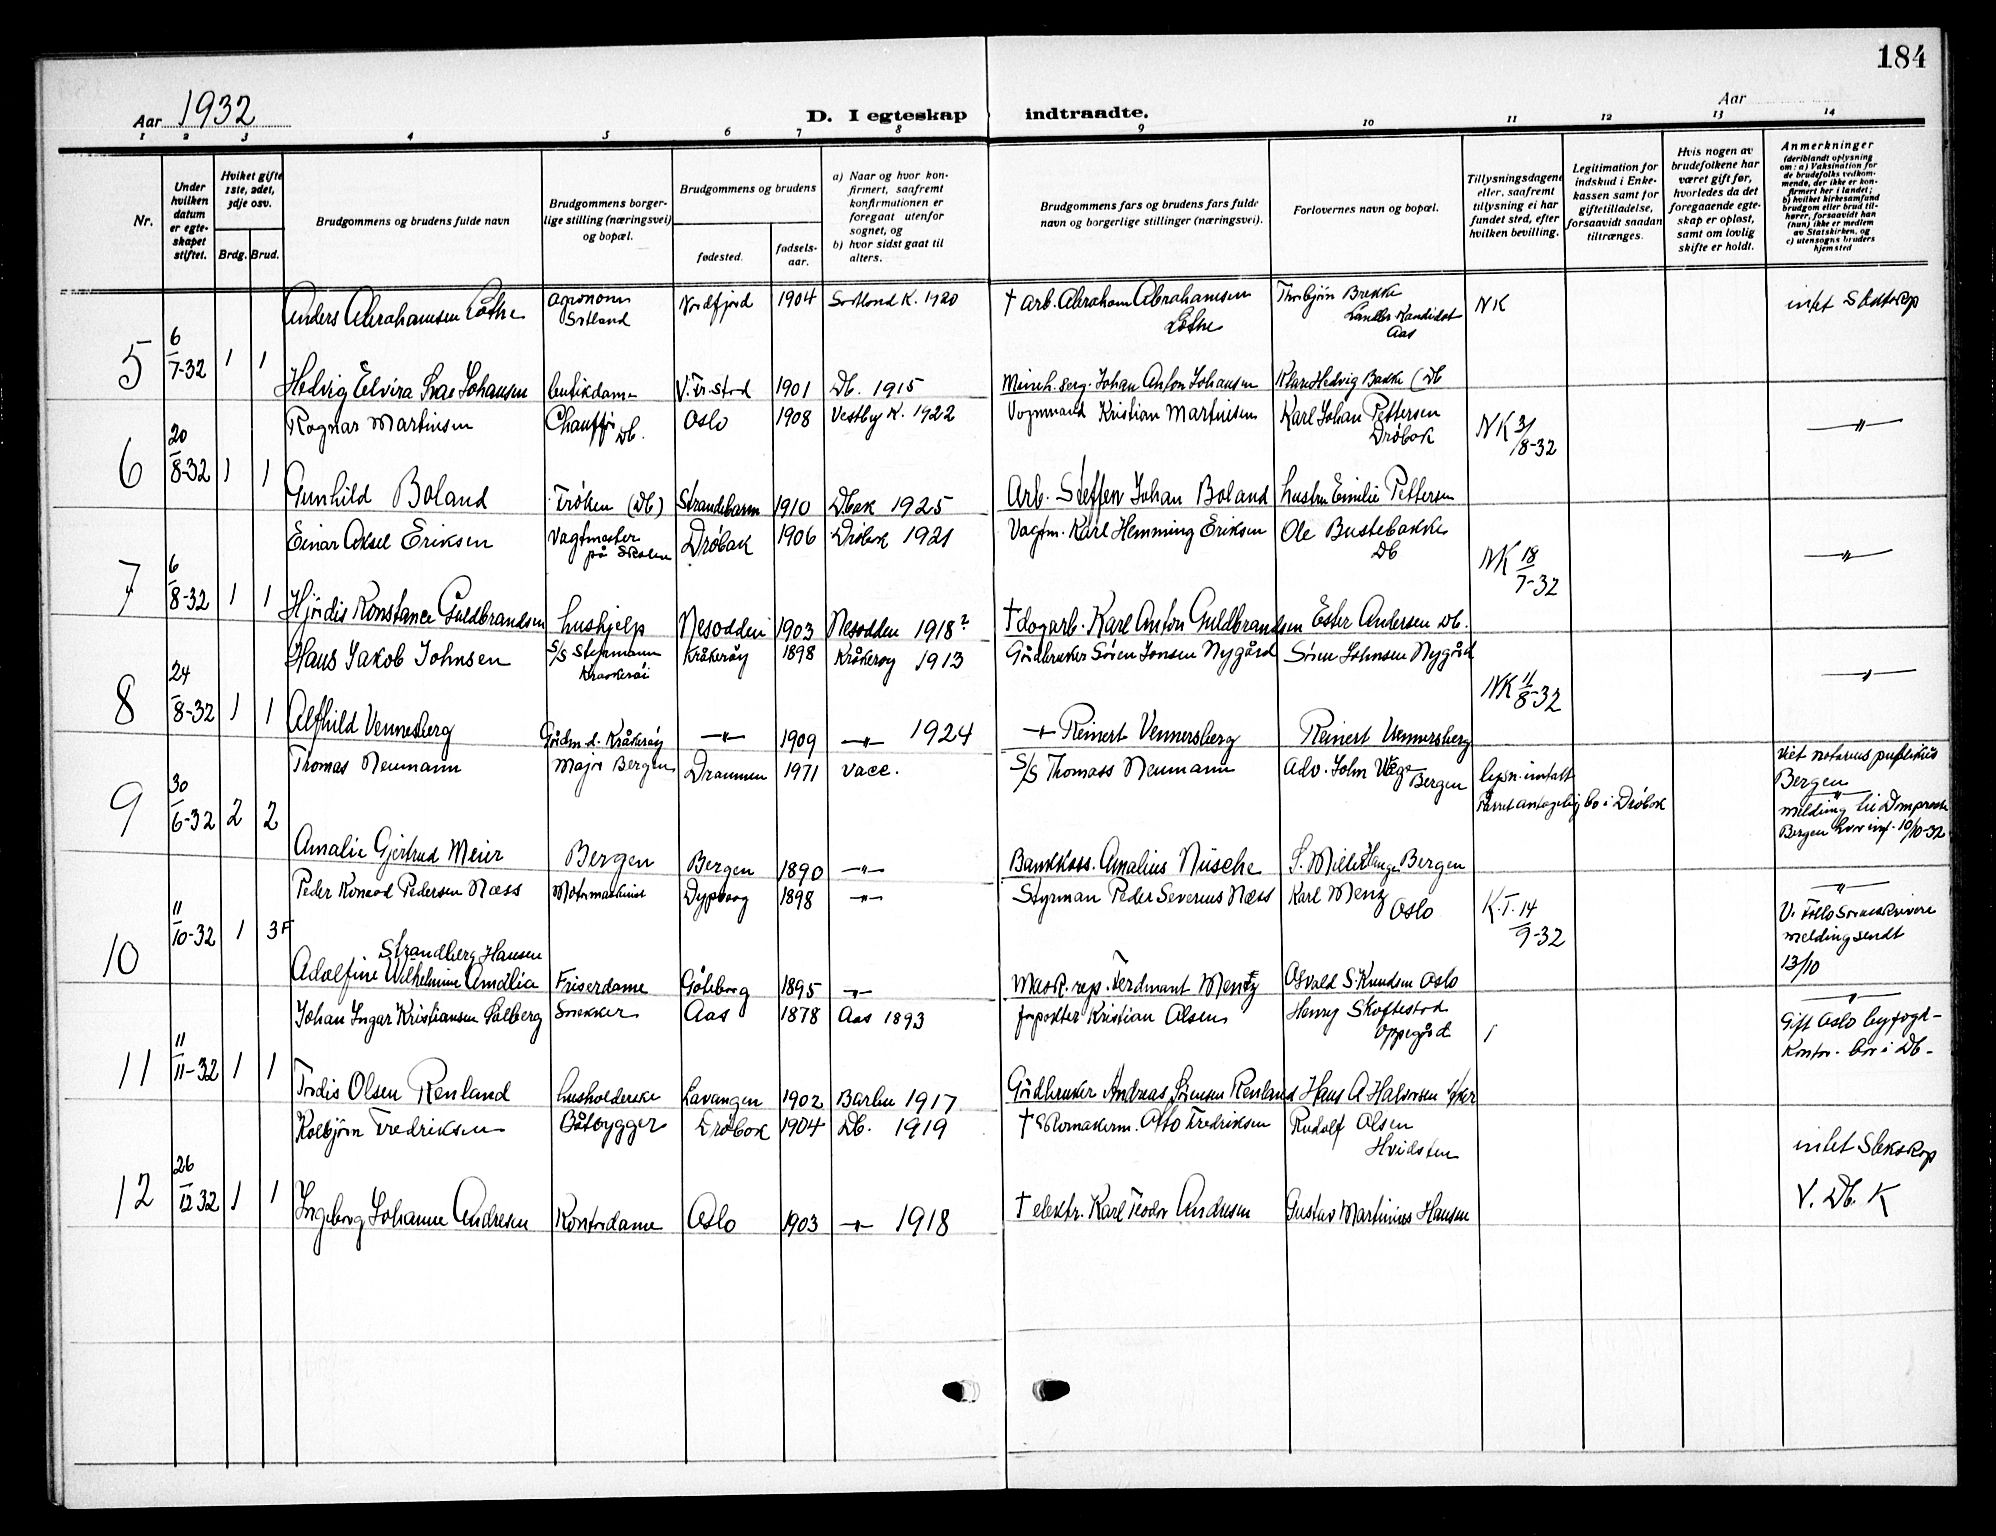 184
Aar 1932
D. I egteskap indtraadte.
Aar
1 2 3 4 5 6 7 8 9 10 11 12 13 14
Nr.
Under hvilken datum er egteskapet stiftet.
Hvilket gifte 1ste, 2det, 3dje osv.
Brdg. Brud.
Brudgommens og brudens fulde navn
Brudgommens borgerlige stilling (næringsvei) og bopæl.
Brudgommens og brudens
fødested. fødselsaar.
a) Naar og hvor konfirmert, saafremt konfirmationen er foregaat utenfor sognet, og
b) hvor sidst gaat til alters.
Brudgommens fars og brudens fars fulde navn og borgerlige stillinger (næringsvei).
Forlovernes navn og bopæl.
Tillysningsdagene eller, saafremt tillysning ei har fundet sted, efter hvilken bevilling.
Legitimation for indskud i Enkekassen samt for giftetilladelse, forsaavidt saadan tiltrænges.
Hvis nogen av brudefolkene har været gift før, hvorledes da det foregaaende egteskap er opløst, samt om lovlig skifte er holdt.
Anmerkninger
(deriblandt oplysning om: a) Vaksination for de brudefolks vedkommende, der ikke er konfirmert her i landet; b) hvilket kirkesamfund brudgom eller brud tilhører, forsaavidt han (hun) ikke er medlem av Statskirken, og c) utensogns bruders hjemsted
5 6/7-32 1 1
Anders Abrahamsen Lothe agronom Nordfjord 1904 K. 1920 † arb. Abraham Abrahamsen Lothe Thorbjørn Brekke Kandidat Aas NK intet Slektskp
Hedvig Elvira Johansen butikdame 1901 Db. 1915 Johan Anton Johansen Hedvig Bakke (Db
6 20/8-32 1 1
Ragnar Martinsen Chauffør Db. Oslo 1908 Vestby K. 1922 Vognmand Kristian Martinsen Karl Johan Pettersen Drøbak NK 31/8-32 —"—
Gunhild Boland Frøken (Db) Strandebarm 1910 Dbak 1925 Arb. Steffen Johan Boland hustru Emilie Pettersen
7 6/8-32 1 1
Einar Aksel Eriksen Vagtmester på Skolen Drøbak 1906 Drøbak 1921 Vagtm. Karl Hemming Eriksen Ole Bustebakke Db NK 18/7-32 —"—
Hjørdis Konstance Guldbrandsen hushjelp Nesodden 1903 Nesodden 1918? † dagarb. Karl Anton Guldbrandsen Ester Andersen Db.
8 24/8-32 1 1
Hans Jakob Johnsen S/S Styrmann Kråkerøy 1898 Kråkerøy 1913 Gårdbruker Søren Jonsen Nygård Søren Johnsen Nygård NK 11/8-32 —"—
Alfhild Vennesberg Gårdm.d. Kråkerøy —"— 1909 —"— 1924 —"— Reinert Vennersberg Reinert Vennersberg
9 30/6-32 2 2
Thomas Neumann Major Bergen Drammen 1971 vacc. S/S Thomass Neumann Adv. John Bergen antagelig bo i Drøbak Viet notarius publikus Bergen
Amalie Gjertrud Meier Bergen Bergen 1890 —"— Bankkass. Amalius Nüsche S. Bergen melding til Domprosten Bergen 10/10-32
10 11/10-32 1 3F
Peder Konrad Pedersen Næss Motormaskinist Dypvaag 1898 —"— Styrman Peder Severius Næss Karl Menz Oslo K.T. 14/9-32 —"— V. Follo Sorenskriveri melding sendt 13/10
Strandberg Hansen
Adolfine Wilhelmine Amalia Friserdame Göteborg 1895 —"— Mask. rep. Ferdinant Mentz Osvald S. Knudsen Oslo
11 11/11-32 1 1
Johan Ingar Kristiansen Solberg Snekker Aas 1878 Aas 1893 forpakter Kristian Olsen Henry Skoftestad Oppegård 1 —"— Gift Oslo byfogd-Kontor. bor i Db.
Tordis Olsen Renland husholderske Lavangen 1902 Barbu 1917 Gårdbruker Andreas Sørensen Renland Hans A Halvorsen
12 26/12 32 1 1
Kolbjørn Fredriksen Båtbygger Drøbak 1904 Db. 1919 † Skomakerm. Fredriksen Rudolf Olsen Hvidsten intet Slekskap
Ingeborg Johanne Andresen Kontordame Oslo 1903 —"— 1918 † elektr. Karl Teodor Andresen Gustav Martinius Hansen V. Db. K